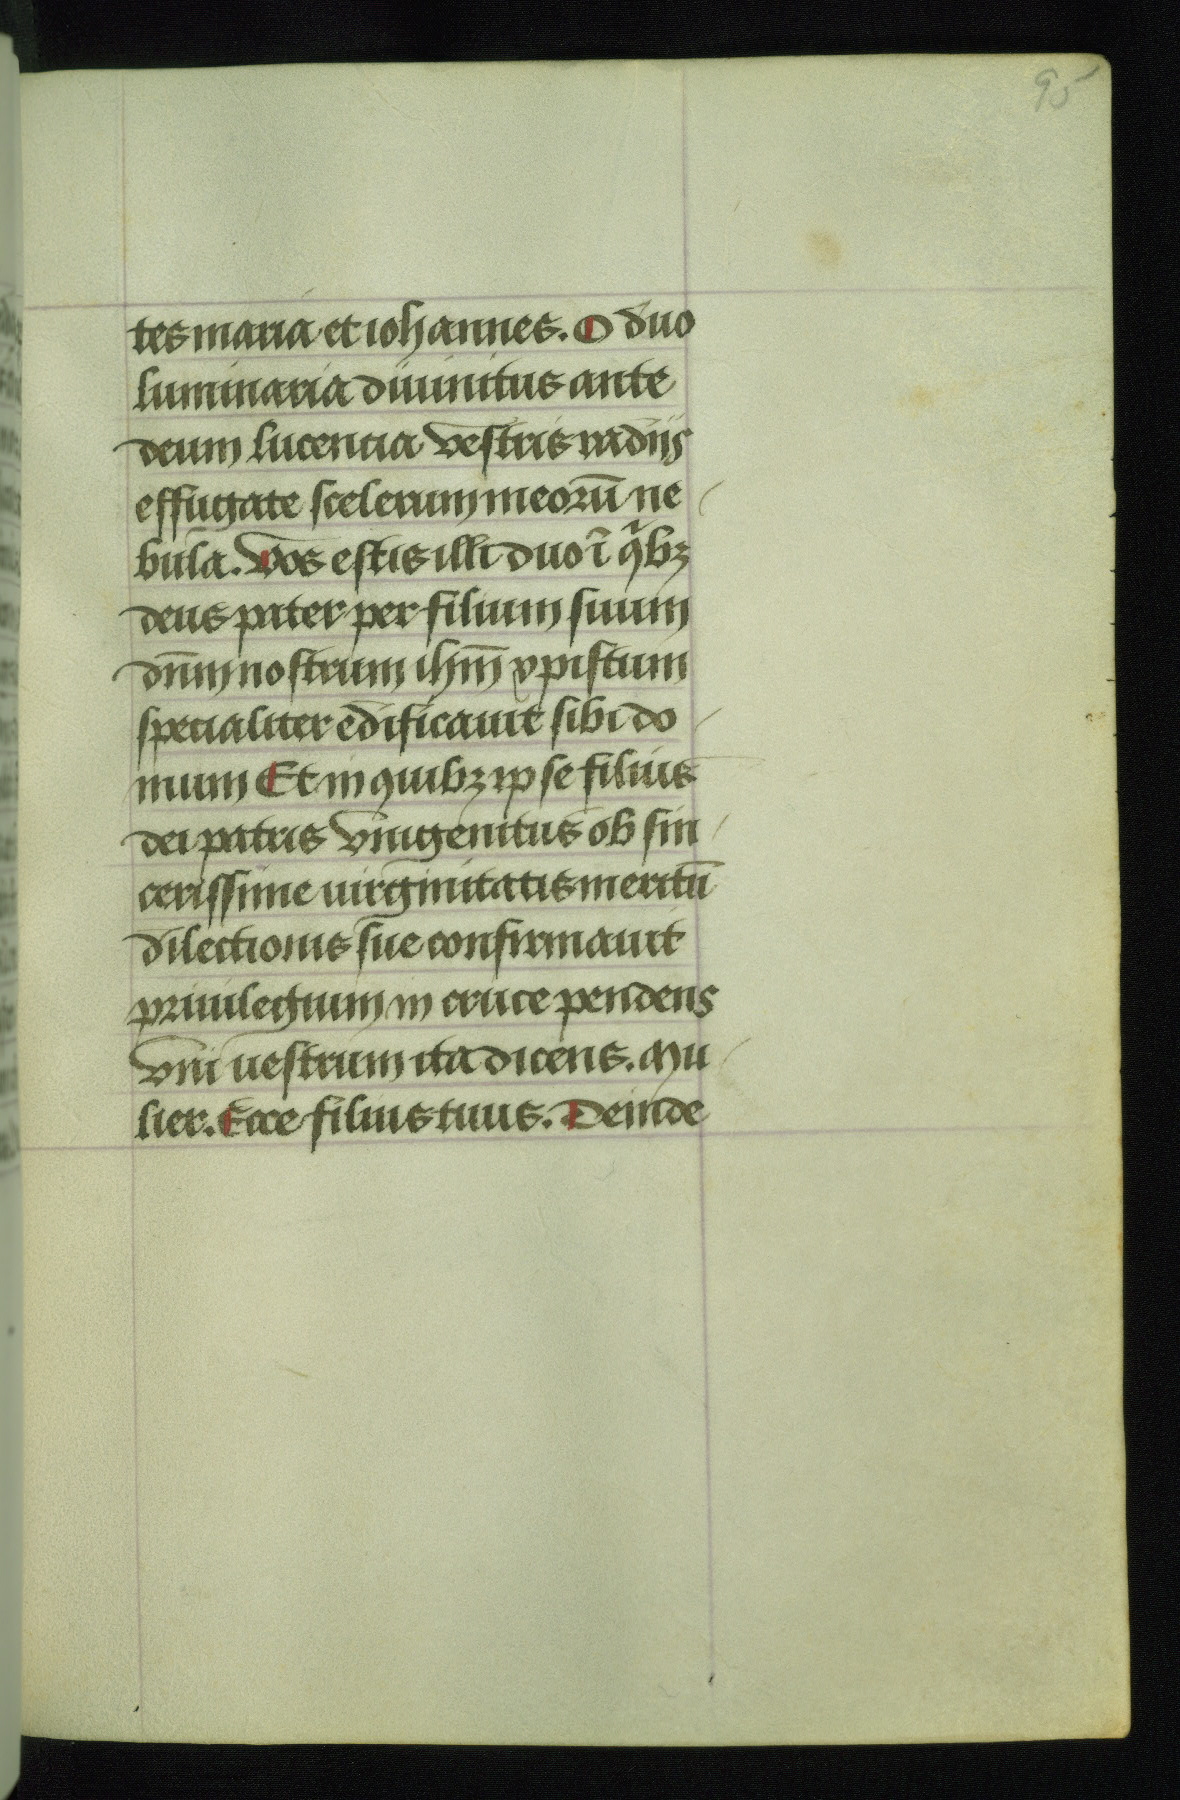 95
tes maria et iohannes. O duo
luminaria diuinitus ante
deum lucencia vestris radijs
effugate scelerum meorū ne
bula. Vos estis illi duo ī qͥbꝫ
deus pater per filium suum
dn̄m nostrum ihm̄ xpistum
specialiter edificauit sibi do
mum Et in quibꝫ ipse filius
dei patris vnigenitus ob sin
cerissime uirginitatis meritū
dilectionis sue confirmauit
priuilegium in cruce pendens
vni uestrum ita dicens. Mu
lier. Ecce filius tuus. Deinde